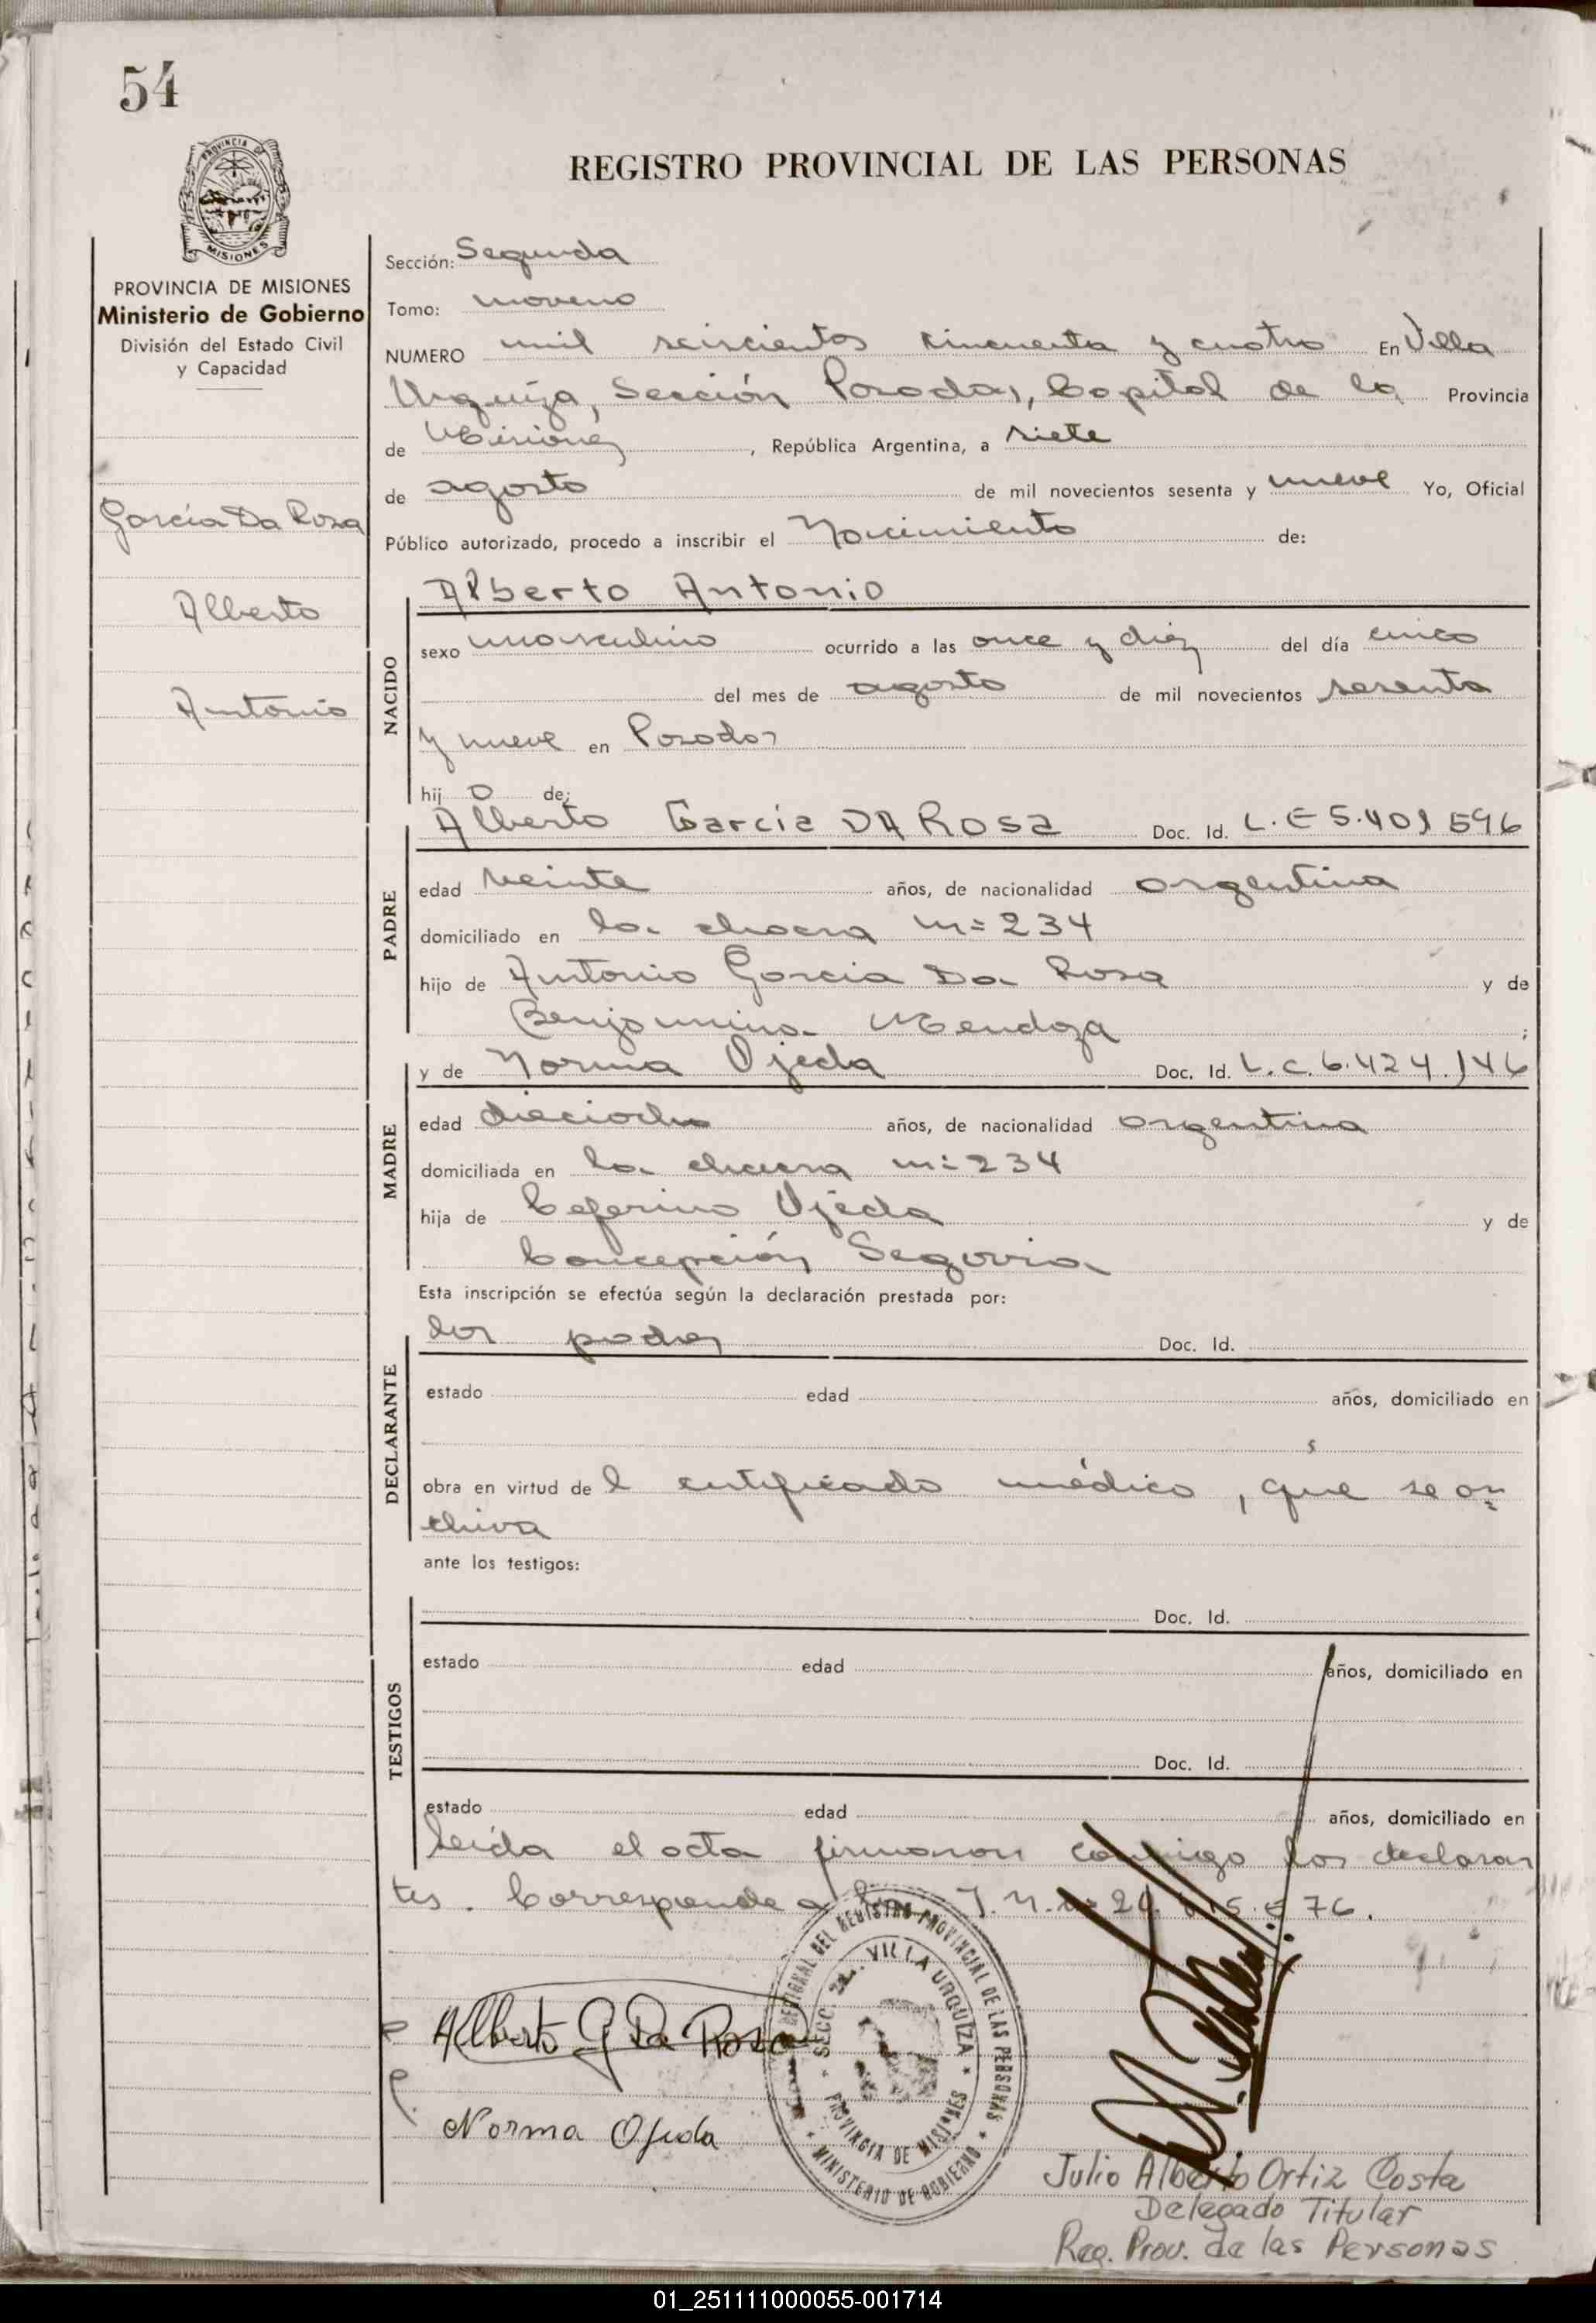 54
PROVINCIA DE
MISIONES
REGISTRO PROVINCIAL DE LAS PERSONAS
PROVINCIA DE MISIONES
Ministerio de Gobierno
División del Estado Civil
y Capacidad
García Da Rosa
Alberto
Antonio
Sección: Segunda
Tomo: noveno
NUMERO mil seiscientos cincuenta y cuatro En Villa
Urquiza, Sección Posadas, Capital de la Provincia
de Misiones, República Argentina, a siete
de agosto de mil novecientos sesenta y nueve Yo, Oficial
Público autorizado, procedo a inscribir el Nacimiento de:
NACIDO
Alberto Antonio
sexo masculino ocurrido a las once y diez del día cinco
del mes de agosto de mil novecientos sesenta
y nueve en Posadas
hij o de:
PADRE
Alberto Garcia DA ROSA Doc. Id. L.E 5.401 596
edad veinte años, de nacionalidad argentina
domiciliado en la chacra n= 234
hijo de Antonio Garcia Da Rosa y de
Benjamina Mendoza ;
MADRE
y de Norma Ojeda Doc. Id. L.C. 6.424.146
edad dieciocho años, de nacionalidad argentina
domiciliada en la chacra n= 234
hija de Ceferino Ojeda y de
Concepción Segovia
Esta inscripción se efectúa según la declaración prestada por:
DECLARANTE
los padres Doc. Id.
estado edad años, domiciliado en
obra en virtud de l certificado médico, que se ar=
chiva
ante los testigos:
TESTIGOS
Doc. Id.
estado edad años, domiciliado en
Doc. Id.
estado edad años, domiciliado en
Leída el acta firmaron conmigo los declaran
tes. Corresponde a 76.
Alberto G Da Rosa
Norma Ojeda
REGIONAL DEL REGISTRO PROVINCIAL DE LAS PERSONAS
SECC. 2a. VILLA URQUIZA
PROVINCIA DE MISIONES
MINISTERIO DE GOBIERNO
Julio Alberto Ortiz Costa
Delegado Titular
Reg. Prov. de las Personas
01_251111000055-001714